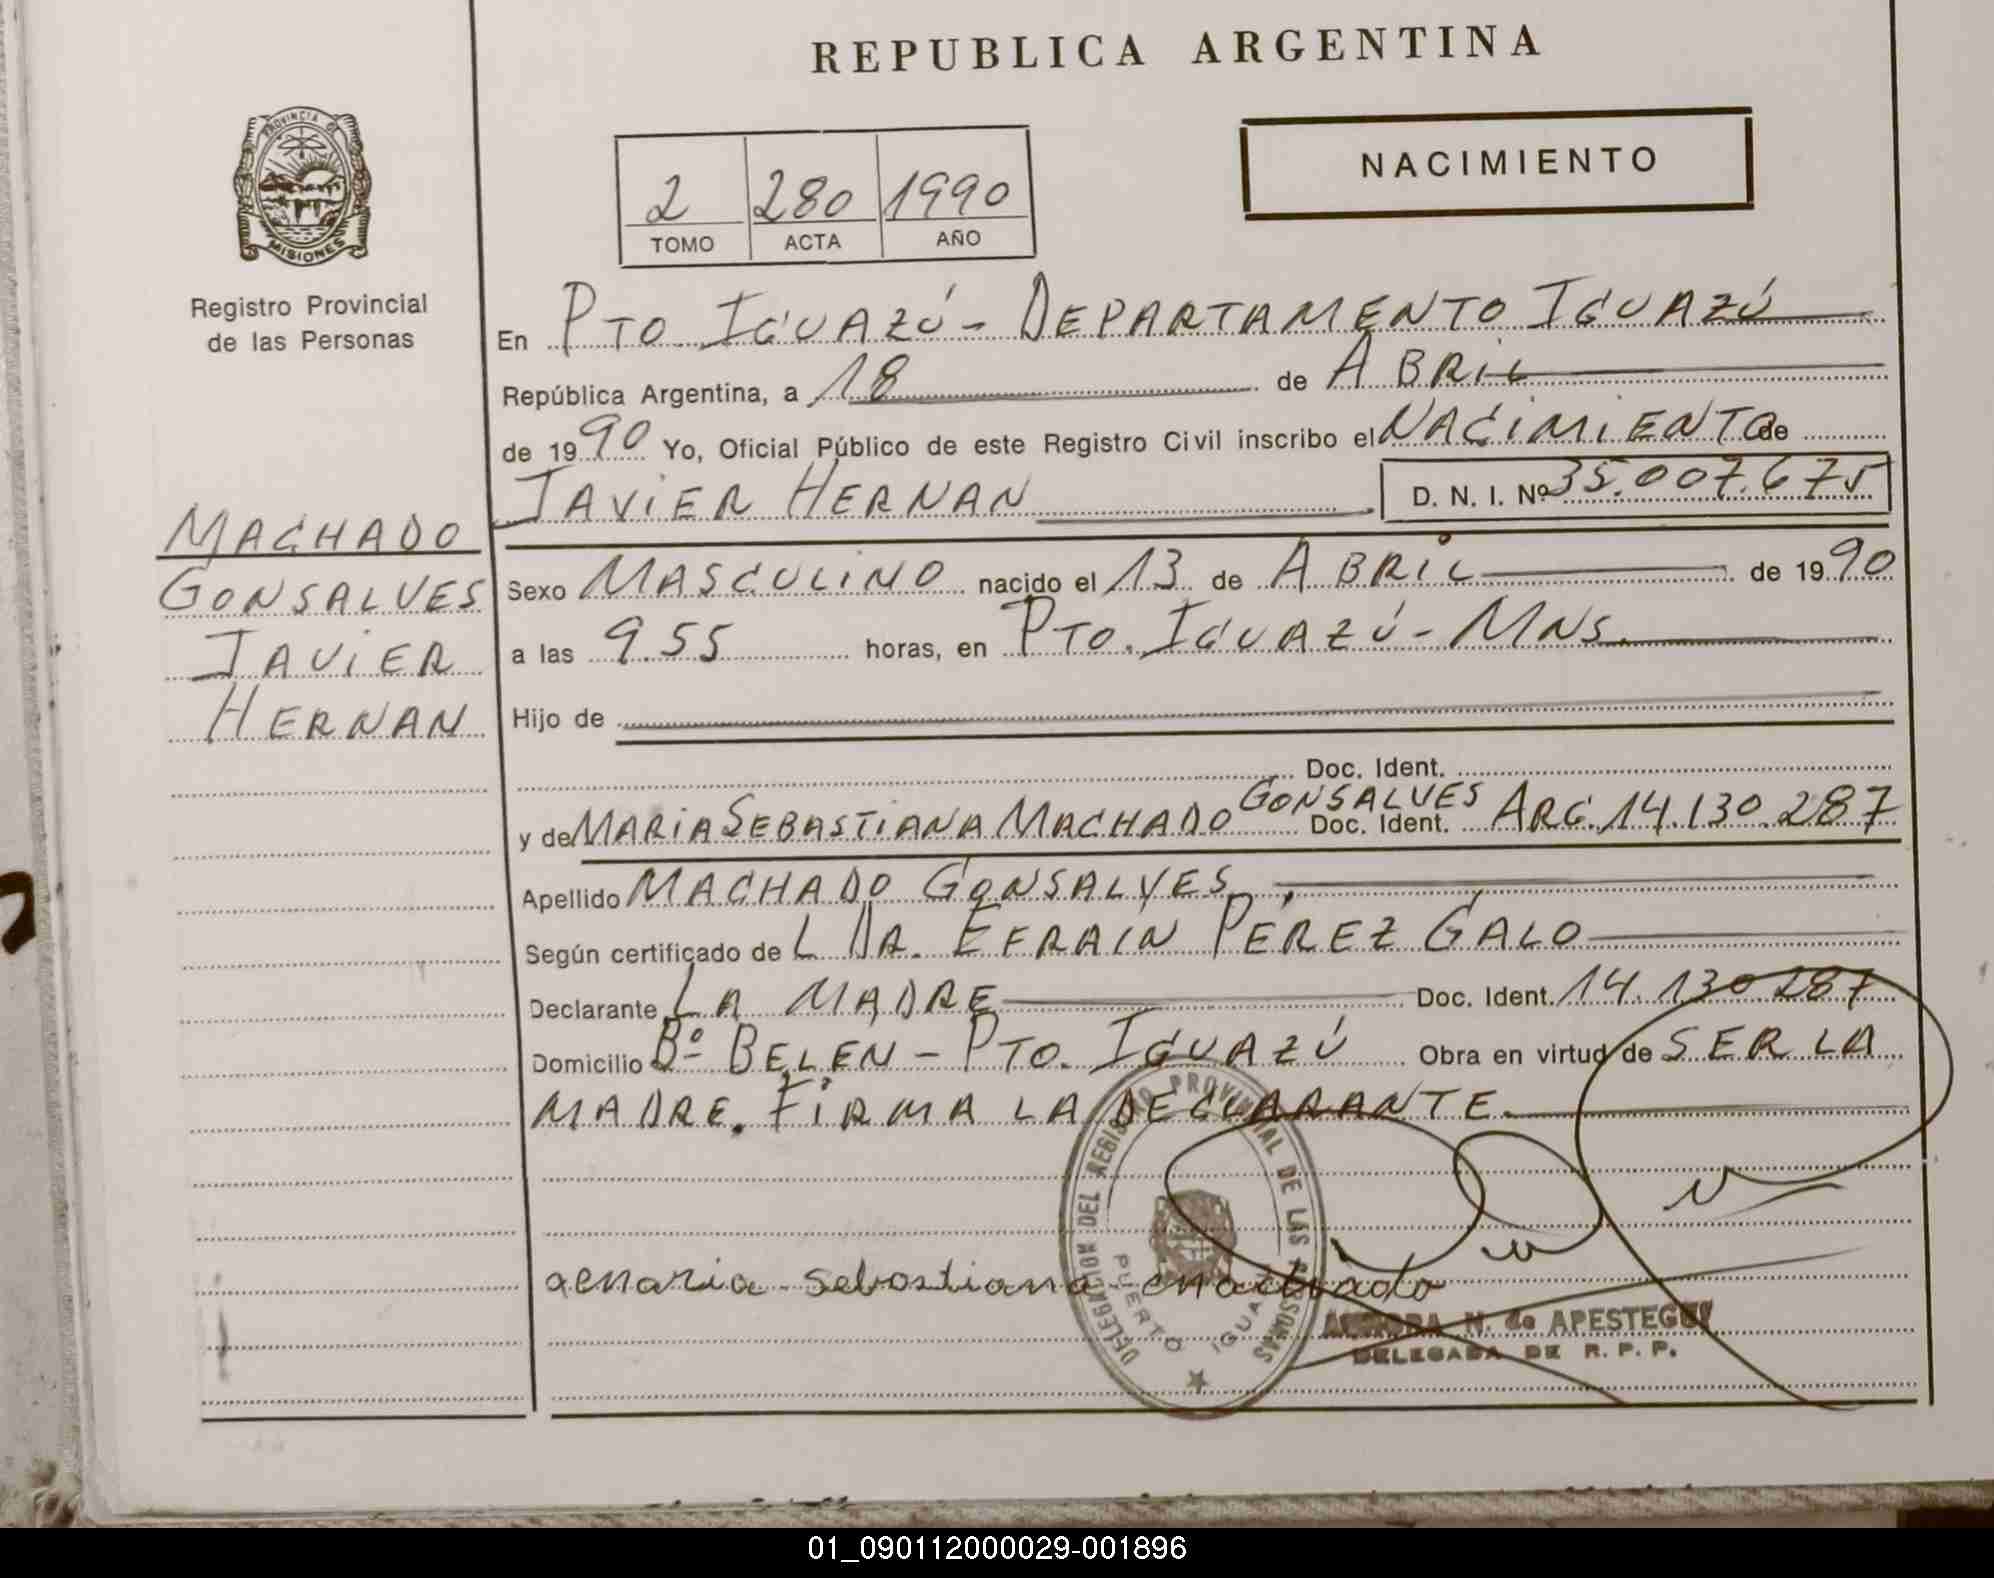 REPUBLICA ARGENTINA
PROVINCIA DE
MISIONES
Registro Provincial
de las Personas
NACIMIENTO
2 280 1990
TOMO ACTA AÑO
En PTO IGUAZÚ - DEPARTAMENTO IGUAZÚ
República Argentina, a 18 de ABRIL
de 1990 Yo, Oficial Público de este Registro Civil inscribo el NACIMIENTO de
JAVIER HERNAN D. N. I. Nº 35.007.675
MACHADO
GONSALVES
JAVIER
HERNAN
Sexo MASCULINO nacido el 13 de ABRIL de 1990
a las 9.55 horas, en PTO. IGUAZÚ - MNS.
Hijo de
Doc. Ident.
y de MARIA SEBASTIANA MACHADO GONSALVES Doc. Ident. ARG. 14.130.287
Apellido MACHADO GONSALVES
Según certificado de L DR. EFRAÍN PÉREZ GALO
Declarante LA MADRE Doc. Ident. 14.130287
Domicilio Bº BELEN - PTO. IGUAZÚ Obra en virtud de SER LA
MADRE. FIRMA LA DECLARANTE.
DELEGACION DEL REGISTRO PROVINCIAL DE LAS PERSONAS
PUERTO IGUAZU
sebastiana machado
N. de APESTEGUI
DELEGADA DE R. P. P.
01_090112000029-001896